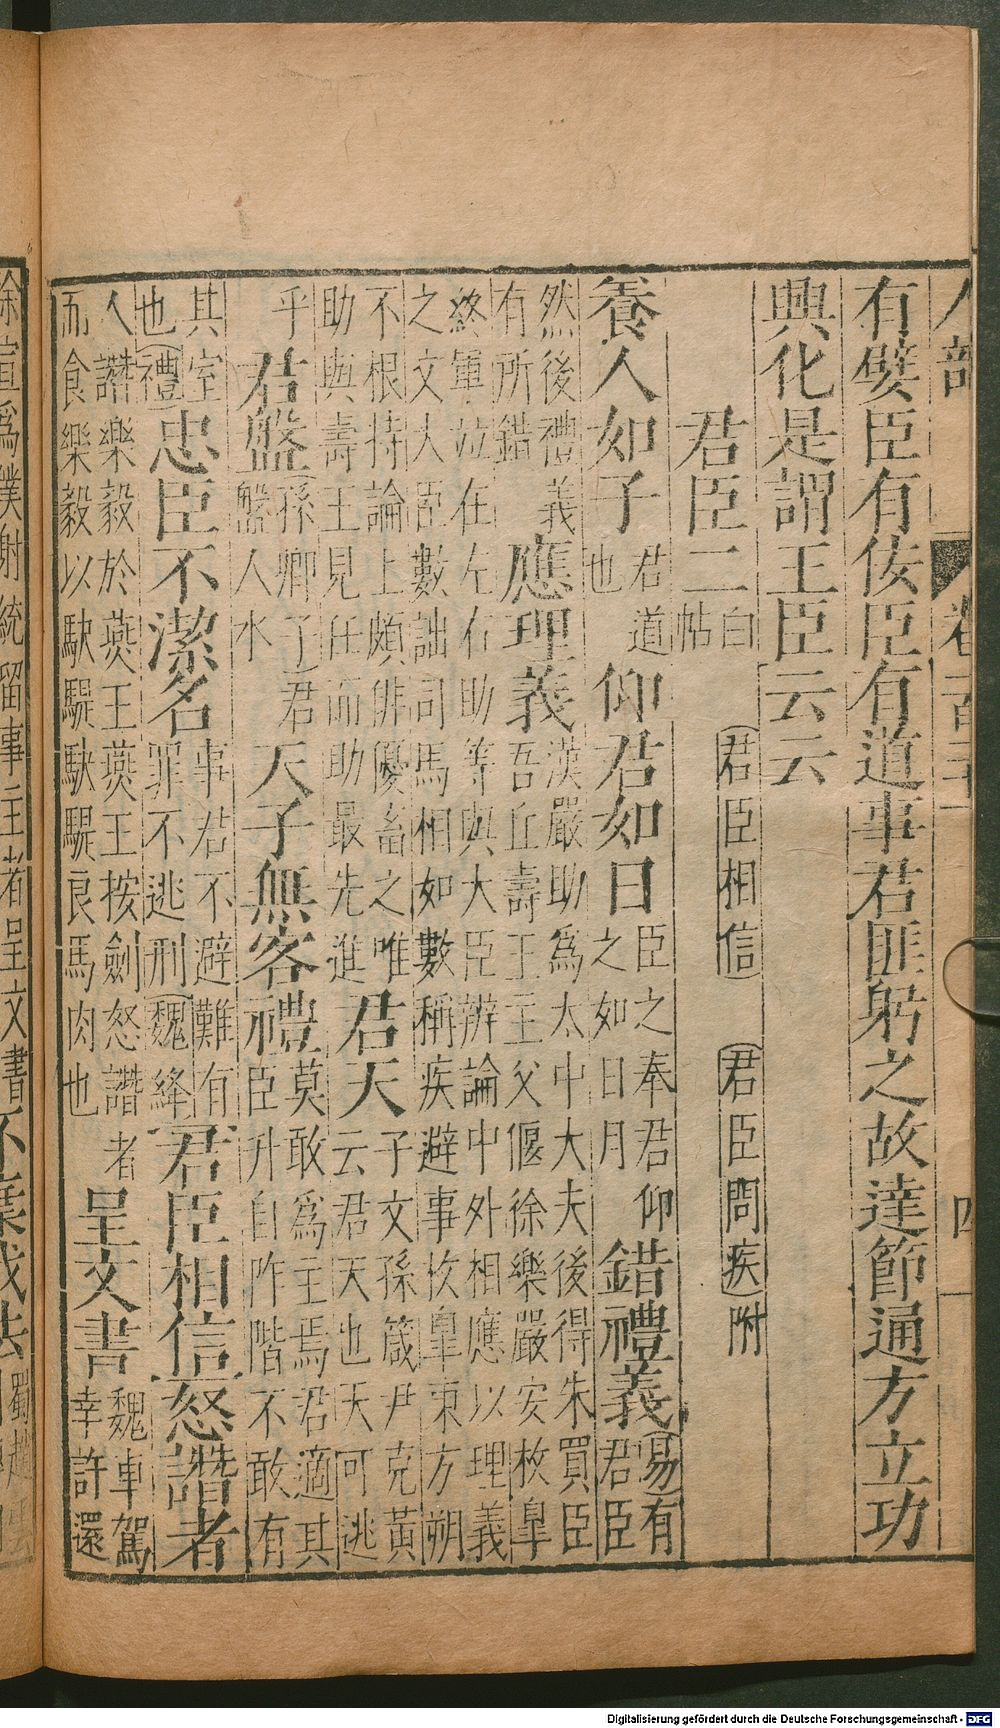 人部 卷 四
有嬖臣有佞臣有道事君匪躬之故達節通方立功
興化是謂王臣云云
君臣二 白帖 君臣相信 君臣問疾附
養人如子 君道也 仰君如日 臣之奉君仰之如日月 錯禮義 易有君臣
然後禮義有所錯 應理義 漢嚴助為太中大夫後得朱買臣吾丘壽王主父偃徐樂嚴安枚皐
終軍竝在左右助等與大臣辨論中外相應以理義之文大臣數詘司馬相如數稱疾避事枚皐東方朔
不根持論上頗俳優畜之唯助與壽王見任而助最先進 君天 子文孫箴尹克黃云君天也天可逃
乎 君盤 孫卿子君盤人水 天子無客禮 莫敢爲主焉君適其臣升自阼階不敢有
其室也禮 忠臣不潔名 事君不避難有罪不逃刑魏絳 君臣相信 怒譖者
人譖樂毅於燕王燕王按劍怒譖者而食樂毅以駃騠駃騠良馬肉也 呈文書 魏車駕幸許還
徐宣爲僕射統留事主者呈文書 不棄成法 蜀
Digitalisierung gefördert durch die Deutsche Forschungsgemeinschaft - DFG